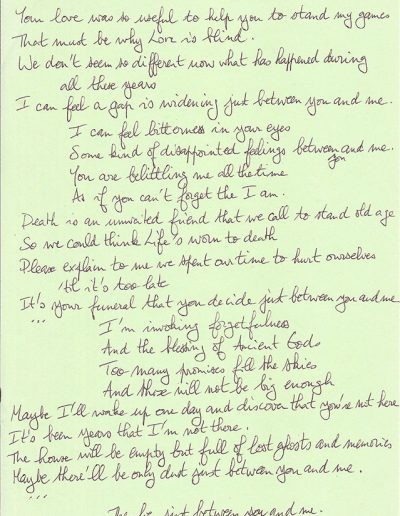 Your love was so useful to help you to stand my games
That must be why Love is blind.
We don't seem so different now what has happened during
all these years
I can feel a gap is widening just between you and me.
I can feel bitterness in your eyes
Some kind of disappointed feelings between you and me.
You are belittling me all the time
As if you can't forget the I am.
Death is an unwaited friend that we call to stand old age
So we could think Life's worn to death
Please explain to me we spent our time to hurt ourselves
'til it's too late
It's your funeral that you decide just between you and me
...
I'm invoking forgetfulness
And the blessing of Ancient Gods
Too many promises fill the skies
And those will not be big enough
Maybe I'll wake up one day and discover that you're not here
It's been years that I'm not there.
The house will be empty but full of lost ghosts and memories
Maybe there'll be only dust just between you and me.
...
just between you and me.